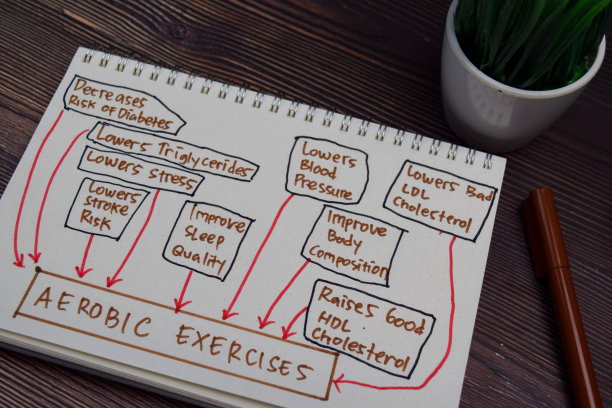 Decreases
Risk of Diabetes
Lowers Triglycerides
Lowers Stress
Lowers
Stroke
Risk
Improve
Sleep
Quality
Lowers
Blood
Pressure
Improve
Body
Composition
Lowers Bad
LDL
Cholesterol
Raises Good
HDL
Cholesterol
AEROBIC EXERCISES